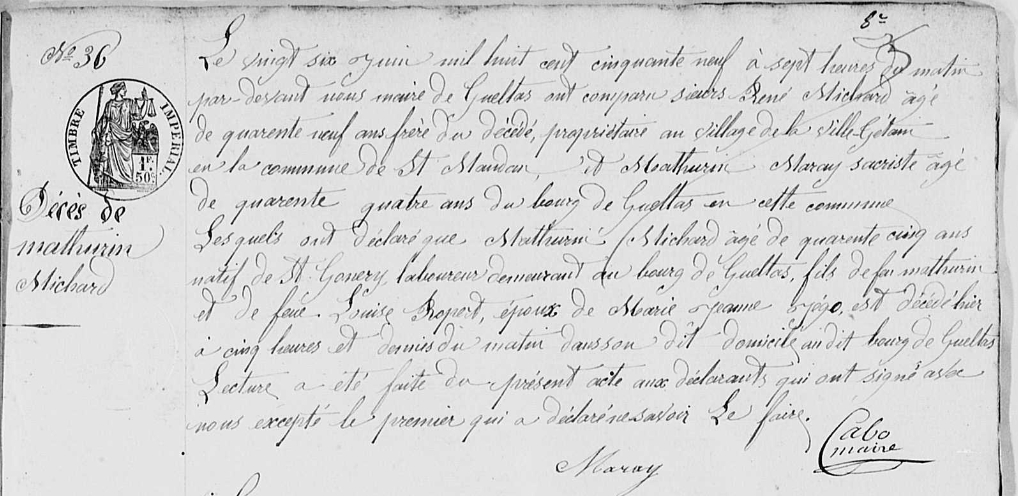 8re
No 36
TIMBRE IMPERIAL
1F.
50c
Décès de
mathurin
Michard
Le vingt six Juin mil huit cent cinquante neuf à sept heures du matin
par-devant nous maire de Gueltas ont comparu sieurs René Michard âgé
de quarente neuf ans frère du décédé, propriétaire au village de la Ville Gélain
en la commune de St Maudan, et Mathurin Maray sacriste âgé
de quarente quatre ans du bourg de Gueltas en cette commune
Lesquels ont déclaré que Mathurin Michard âgé de quarente cinq ans
natif de St. Gonery, laboureur demeurant au bourg de Gueltas, fils de feu mathurin
et de feue Louise Ropert, époux de Marie Jeanne Jégo, est décédé hier
à cinq heures et demies du matin dans son dit domicile au dit bourg de Gueltas
Lecture a été faite du présent acte aux déclarants qui ont signé avec
nous excepté le premier qui a déclaré ne savoir le faire.
Maray
Cabo
maire